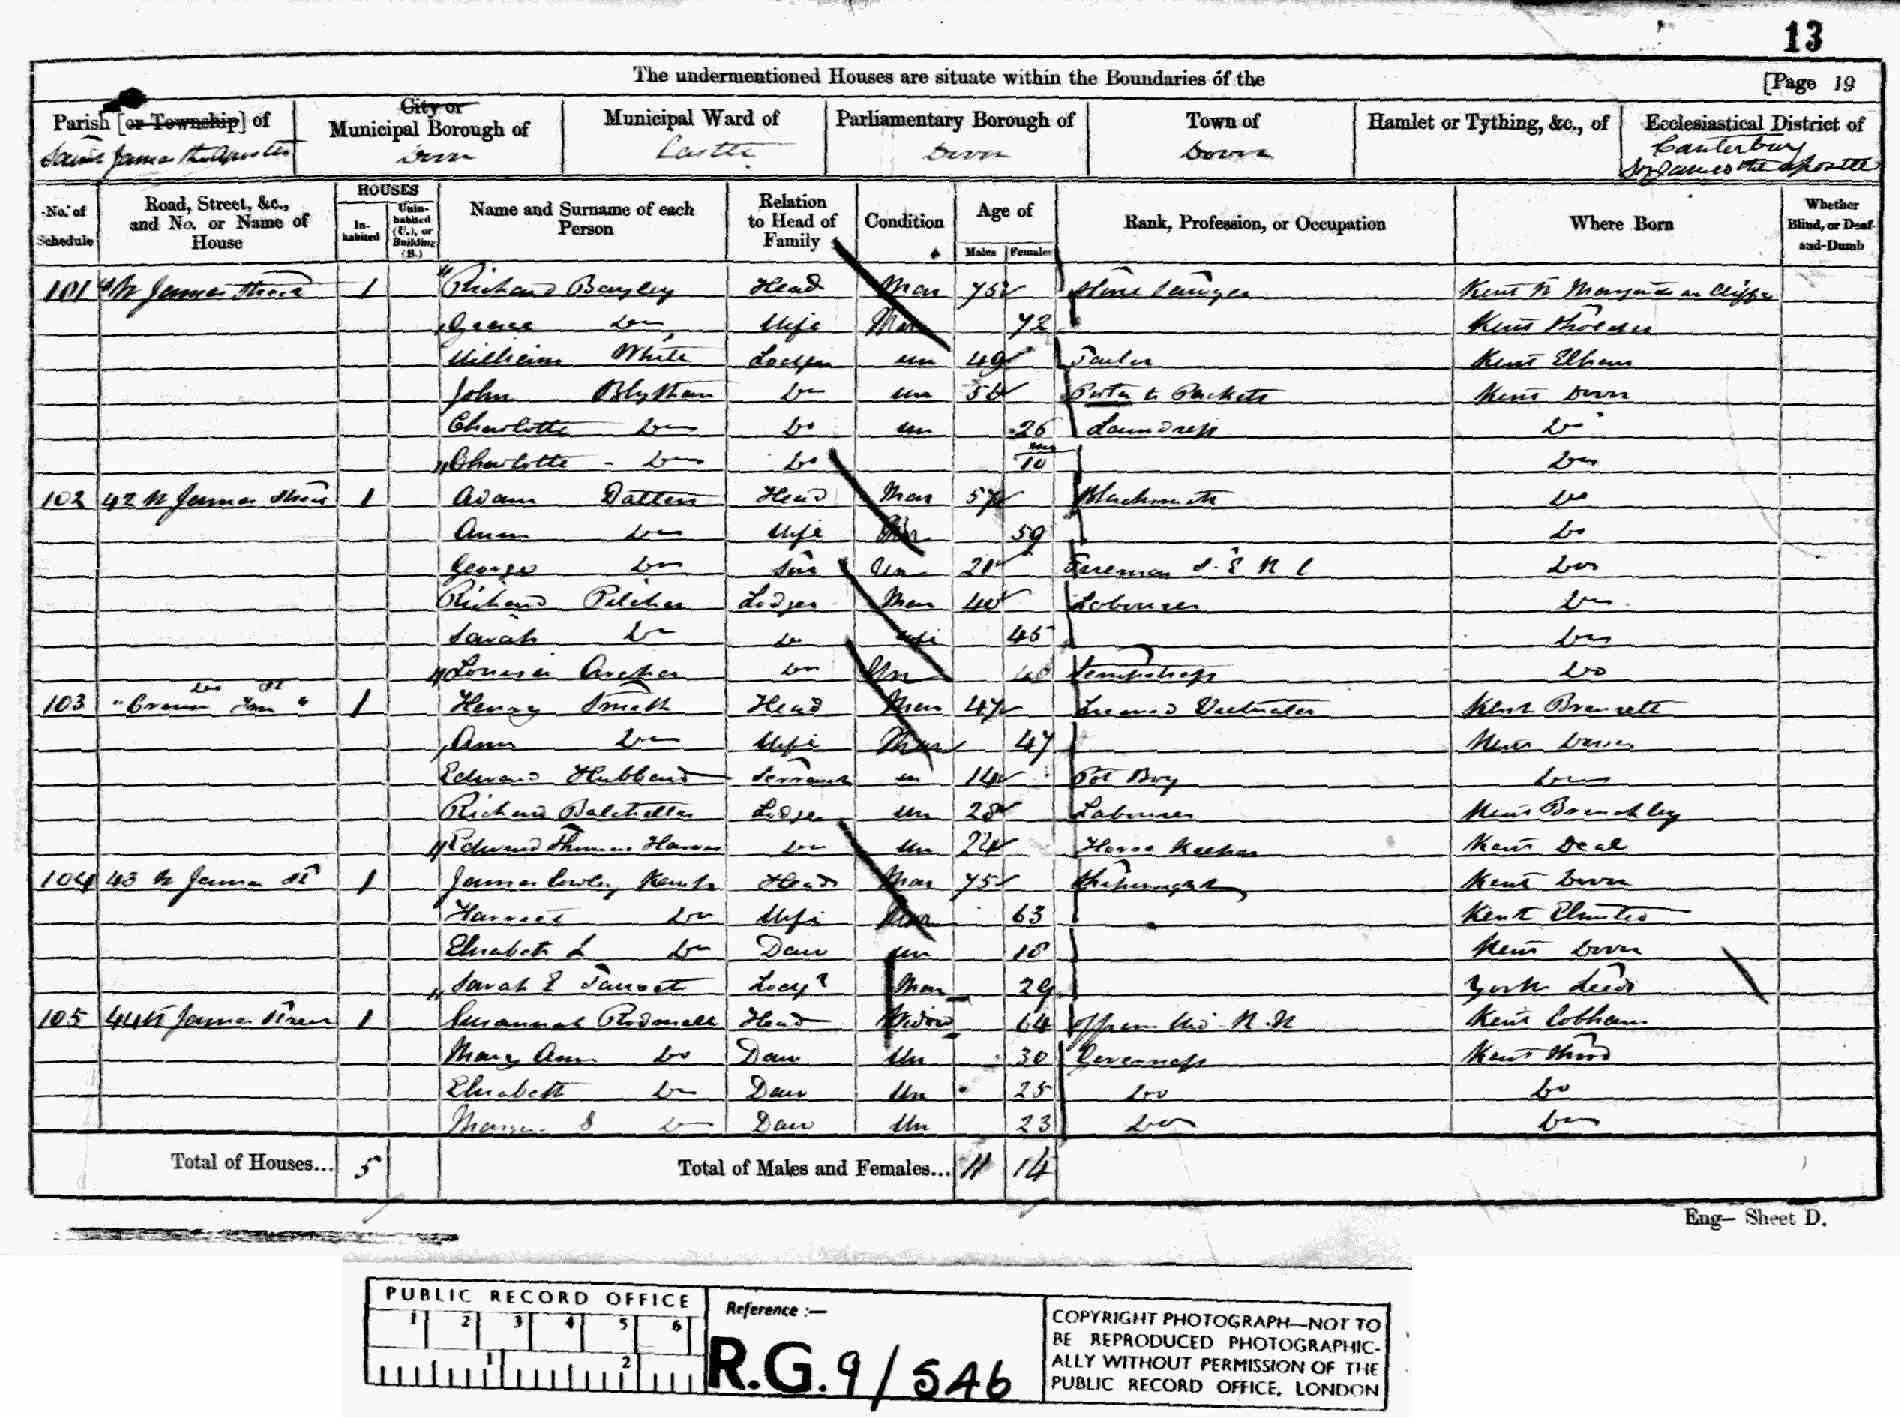 13
The undermentioned Houses are situate within the Boundaries of the
[Page 19
Parish [or Township] of
City or Municipal Borough of
Municipal Ward of
Parliamentary Borough of
Town of
Hamlet or Tything, &c., of
Ecclesiastical District of
Saint James the Apostle
Dover
Castle
Dover
Dover
Canterbury
St James the Apostle
No. of Schedule
Road, Street, &c., and No. or Name of House
HOUSES
In-habited
Unin-habited (U.), or Building (B.)
Name and Surname of each Person
Relation to Head of Family
Condition
Age of
Males
Females
Rank, Profession, or Occupation
Where Born
Whether Blind, or Deaf-and-Dumb
101 St James Street 1 Richard Bayley Head Mar 75 Kent St Margarets
Grace Do Wife Mar 72 Kent
William White Lodger Un 49 Kent Elham
John Do Un Porter to Packets Kent Dover
Charlotte Do Do Un 26 Laundress Do
Charlotte Do Do 10 Do
102 42 St James Street 1 Adam Head Mar 57 Blacksmith Do
Ann Do Wife Mar 59 Do
George Do Son Un 21 Fireman S. E. R. C Do
Richard Pilcher Lodger Mar 40 Labourer Do
Sarah Do Do Wife 45 Do
Louisa Archer Do Un Sempstress Do
103 Do St "Crown Inn" 1 Henry Smith Head Mar 47 Licensed Victualler Kent Brenzett
Ann Do Wife Mar 47 Kent
Edward Hubbard Servant Un 14 Pot Boy Do
Richard Batcheller Lodger Un 28 Labourer Kent Brenchley
Edward Thomas Do Un 24 Horse Keeper Kent Deal
104 43 St James St 1 James Cowley Kemp Head Mar 75 Shipwright Kent Dover
Harriet Do Wife Mar 63 Kent Elmsted
Elizabeth L Do Daur Un 18 Kent Dover
Sarah E Lodgr Mar 29 York Leeds
105 44 St James Street 1 Susannah Head Widow 64 Officers Wid. R. N Kent Cobham
Mary Ann Do Daur Un 30 Governess Kent
Elizabeth Do Daur Un 25 Do Do
Do Daur Un 23 Do Do
Total of Houses... 5
Total of Males and Females... 11 14
Eng— Sheet D.
PUBLIC RECORD OFFICE
1 2 3 4 5 6
1 2
Reference :—
R.G. 9/546
COPYRIGHT PHOTOGRAPH—NOT TO
BE REPRODUCED PHOTOGRAPHIC-
ALLY WITHOUT PERMISSION OF THE
PUBLIC RECORD OFFICE, LONDON